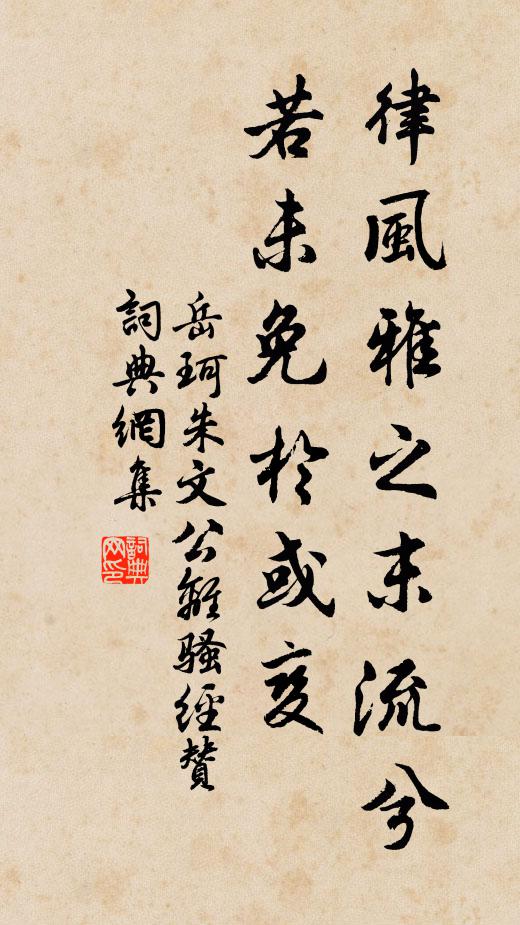 律風雅之末流兮
若未免於或変
岳珂朱文公離騷經贊
詞典網集
詞典网印